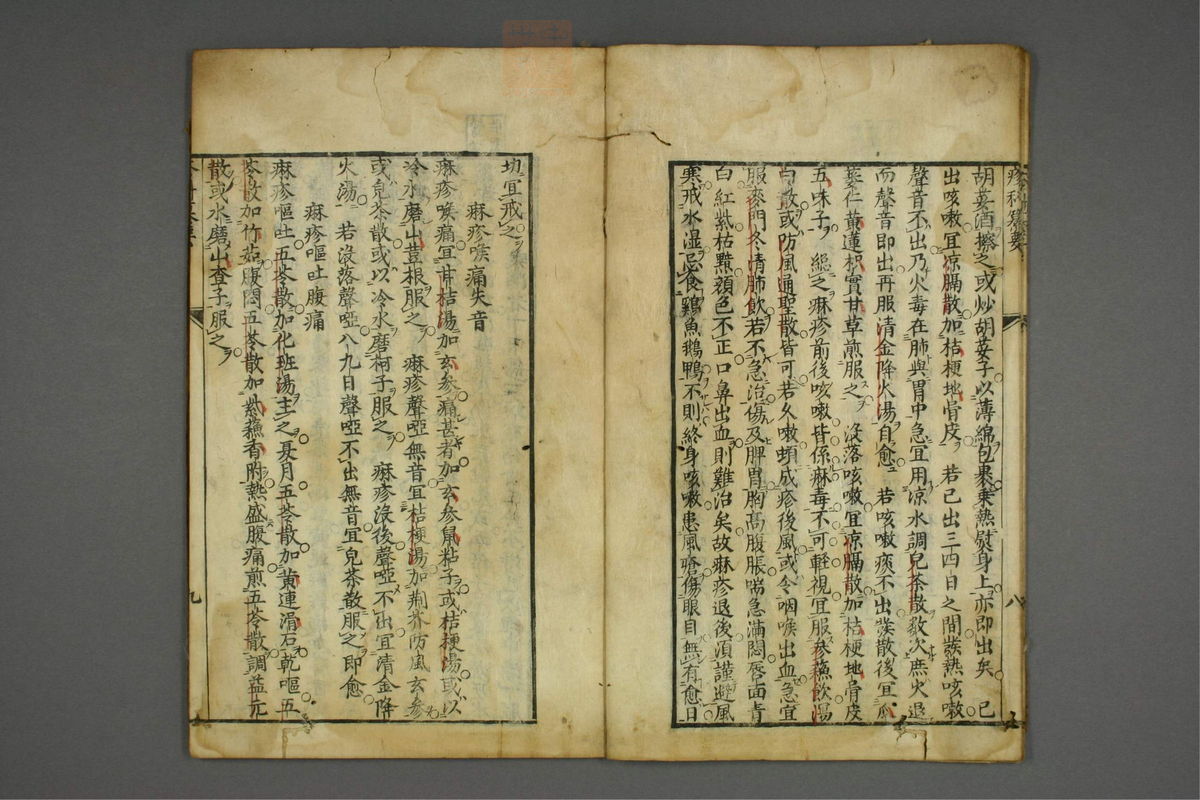 疹科纂要
八
胡荽酒擦之或炒胡荽子以薄綿包裹乘熱熨身上亦即出矣 已
出咳嗽宜凉膈散加桔梗地骨皮 若已出三四日之間發熱咳嗽
聲音不出乃火毒在肺與胃中急宜用凉水調兒茶散數次庶火退
而聲音即出再服清金降火湯自愈 若咳嗽痰不出發散後宜瓜
蔞仁黃蓮枳實甘草煎服之 沒落咳嗽宜凉膈散加桔梗地骨皮
五味子 緫之麻疹前後咳嗽皆係麻毒不可輕視宜服參蘓飲瀉
白散或防風通聖散皆可若久嗽頓成疹後風或令咽喉出血急宜
服麥門冬清肺飲若不急治傷及脾胃胸高腹脹喘急滿悶唇面青
白紅紫枯黯顔色不正口鼻出血則難治矣故麻疹退後須謹避風
寒戒水湿忌食鷄魚鵝鴨不則終身咳嗽患風嗆傷眼目無有愈日
切宜戒之
麻疹喉痛失音
麻疹喉痛宜甘桔湯加玄參痛甚者加玄參鼠粘子或桔梗湯或以
冷水磨山荳根服之 麻疹聲啞無音宜桔梗湯加荆芥防風玄參
或兒茶散或以冷水磨柯子服之 麻疹沒後聲啞不出宜清金降
火湯 若沒落聲啞八九日聲啞不出無音宜兒茶散服之即愈
麻疹嘔吐腹痛
麻疹嘔吐五苓散加化班湯主之夏月五苓散加黃連滑石乾嘔五
苓散加竹茹腹悶五苓散加紫蘓香附熱盛腹痛煎五苓散調益元
散或水磨山查子服之
九